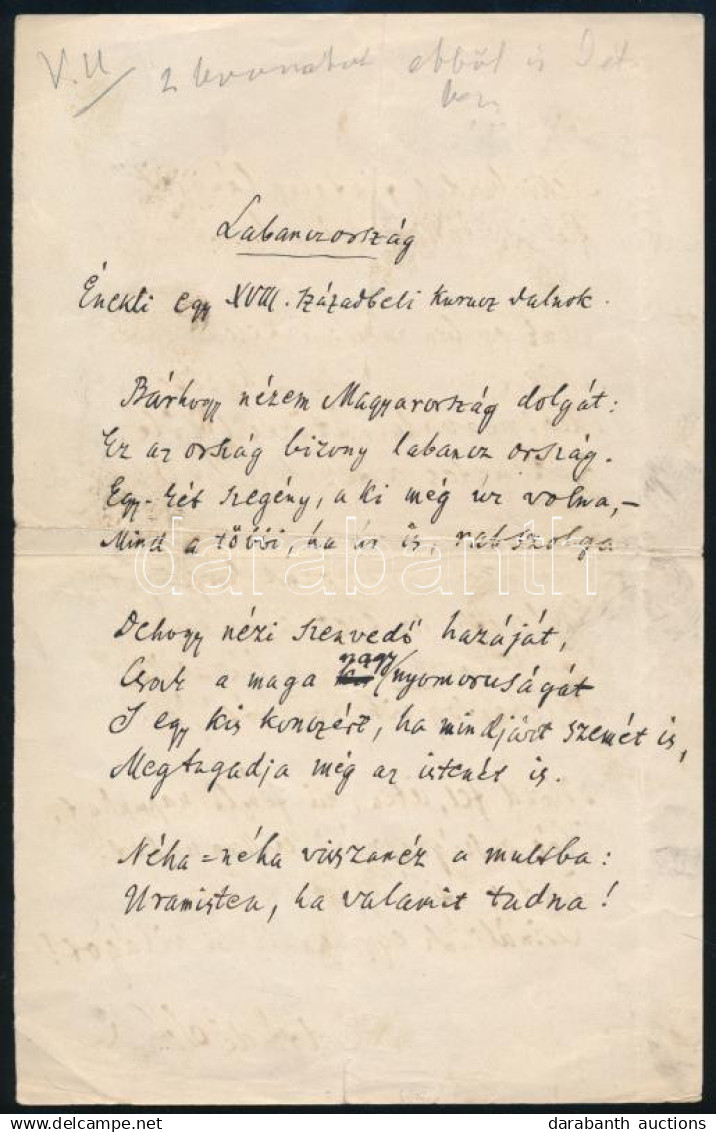 V. U
2 levonatot ebből is
Labanczország
Énekli egy XVIII. századbeli kurucz dalnok.
Bárhogy nézem Magyarország dolgát:
Ez az ország bizony labancz ország.
Egy-két szegény, a ki még úr volna,–
Mind a többi, ha úr is, rabszolga
Dehogy nézi szenvedő hazáját,
Csak a maga nagy/nyomoruságát
S egy kis konczért, ha mindjárt szemét is,
Megtagadja még az istenét is.
Néha=néha visszanéz a multba:
Uramisten, ha valamit tudna!
darabanth
darabanth auctions